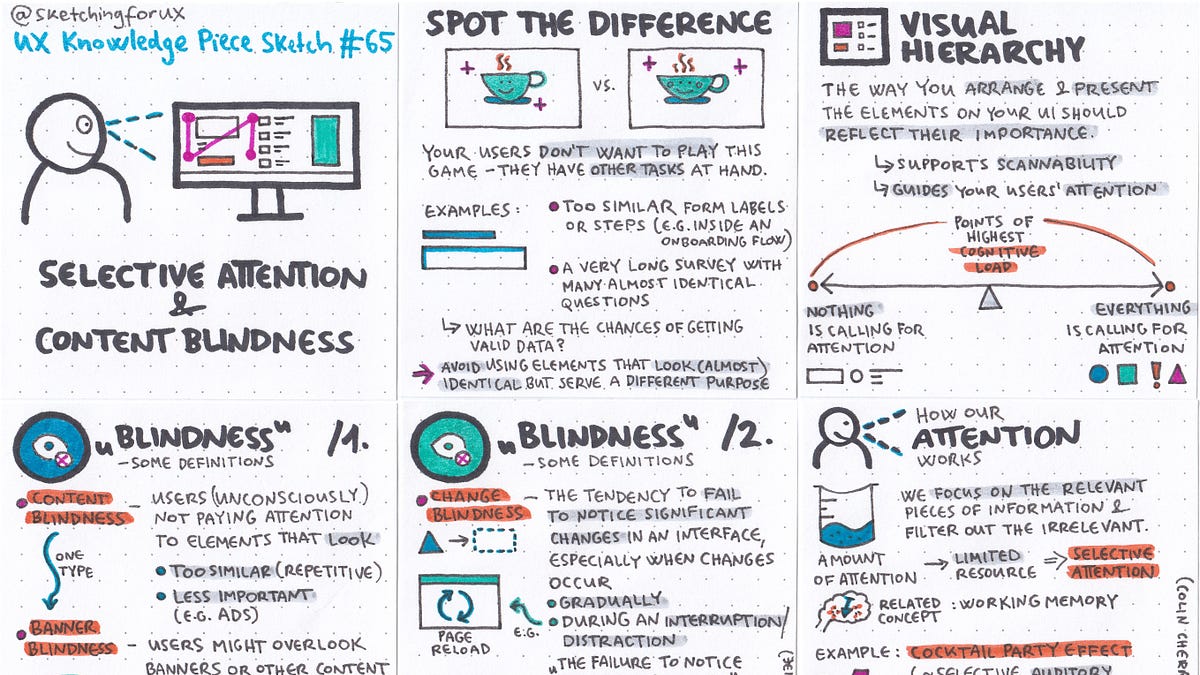 @sketchingforux
UX Knowledge Piece Sketch #65
SELECTIVE ATTENTION
&
CONTENT BLINDNESS
SPOT THE DIFFERENCE
VS.
YOUR USERS DON'T WANT TO PLAY THIS
GAME - THEY HAVE OTHER TASKS AT HAND.
EXAMPLES:
TOO SIMILAR FORM LABELS
OR STEPS (E.G. INSIDE AN
ONBOARDING FLOW)
A VERY LONG SURVEY WITH
MANY ALMOST IDENTICAL
QUESTIONS
WHAT ARE THE CHANCES OF GETTING
VALID DATA?
AVOID USING ELEMENTS THAT LOOK (ALMOST)
IDENTICAL BUT SERVE A DIFFERENT PURPOSE
VISUAL
HIERARCHY
THE WAY YOU ARRANGE & PRESENT
THE ELEMENTS ON YOUR UI SHOULD
REFLECT THEIR IMPORTANCE.
SUPPORTS SCANNABILITY
GUIDES YOUR USERS' ATTENTION
POINTS OF
HIGHEST
COGNITIVE
LOAD
NOTHING
IS CALLING FOR
ATTENTION
EVERYTHING
IS CALLING FOR
ATTENTION
"BLINDNESS" /1.
- SOME DEFINITIONS
CONTENT
BLINDNESS
- USERS (UNCONSCIOUSLY)
NOT PAYING ATTENTION
TO ELEMENTS THAT LOOK
TOO SIMILAR (REPETITIVE)
LESS IMPORTANT
(E.G. ADS)
ONE
TYPE
BANNER
BLINDNESS
- USERS MIGHT OVERLOOK
BANNERS OR OTHER CONTENT
"BLINDNESS" /2.
- SOME DEFINITIONS
CHANGE
BLINDNESS
- THE TENDENCY TO FAIL
TO NOTICE SIGNIFICANT
CHANGES IN AN INTERFACE,
ESPECIALLY WHEN CHANGES
OCCUR
GRADUALLY
DURING AN INTERRUPTION/
DISTRACTION
E.G.
PAGE
RELOAD
"THE FAILURE TO NOTICE
HOW OUR
ATTENTION
WORKS
WE FOCUS ON THE RELEVANT
PIECES OF INFORMATION &
FILTER OUT THE IRRELEVANT.
AMOUNT
OF ATTENTION
LIMITED
RESOURCE
SELECTIVE
ATTENTION
RELATED
CONCEPT
: WORKING MEMORY
EXAMPLE: COCKTAIL PARTY EFFECT
(~SELECTIVE AUDITORY
(COLIN CHERR